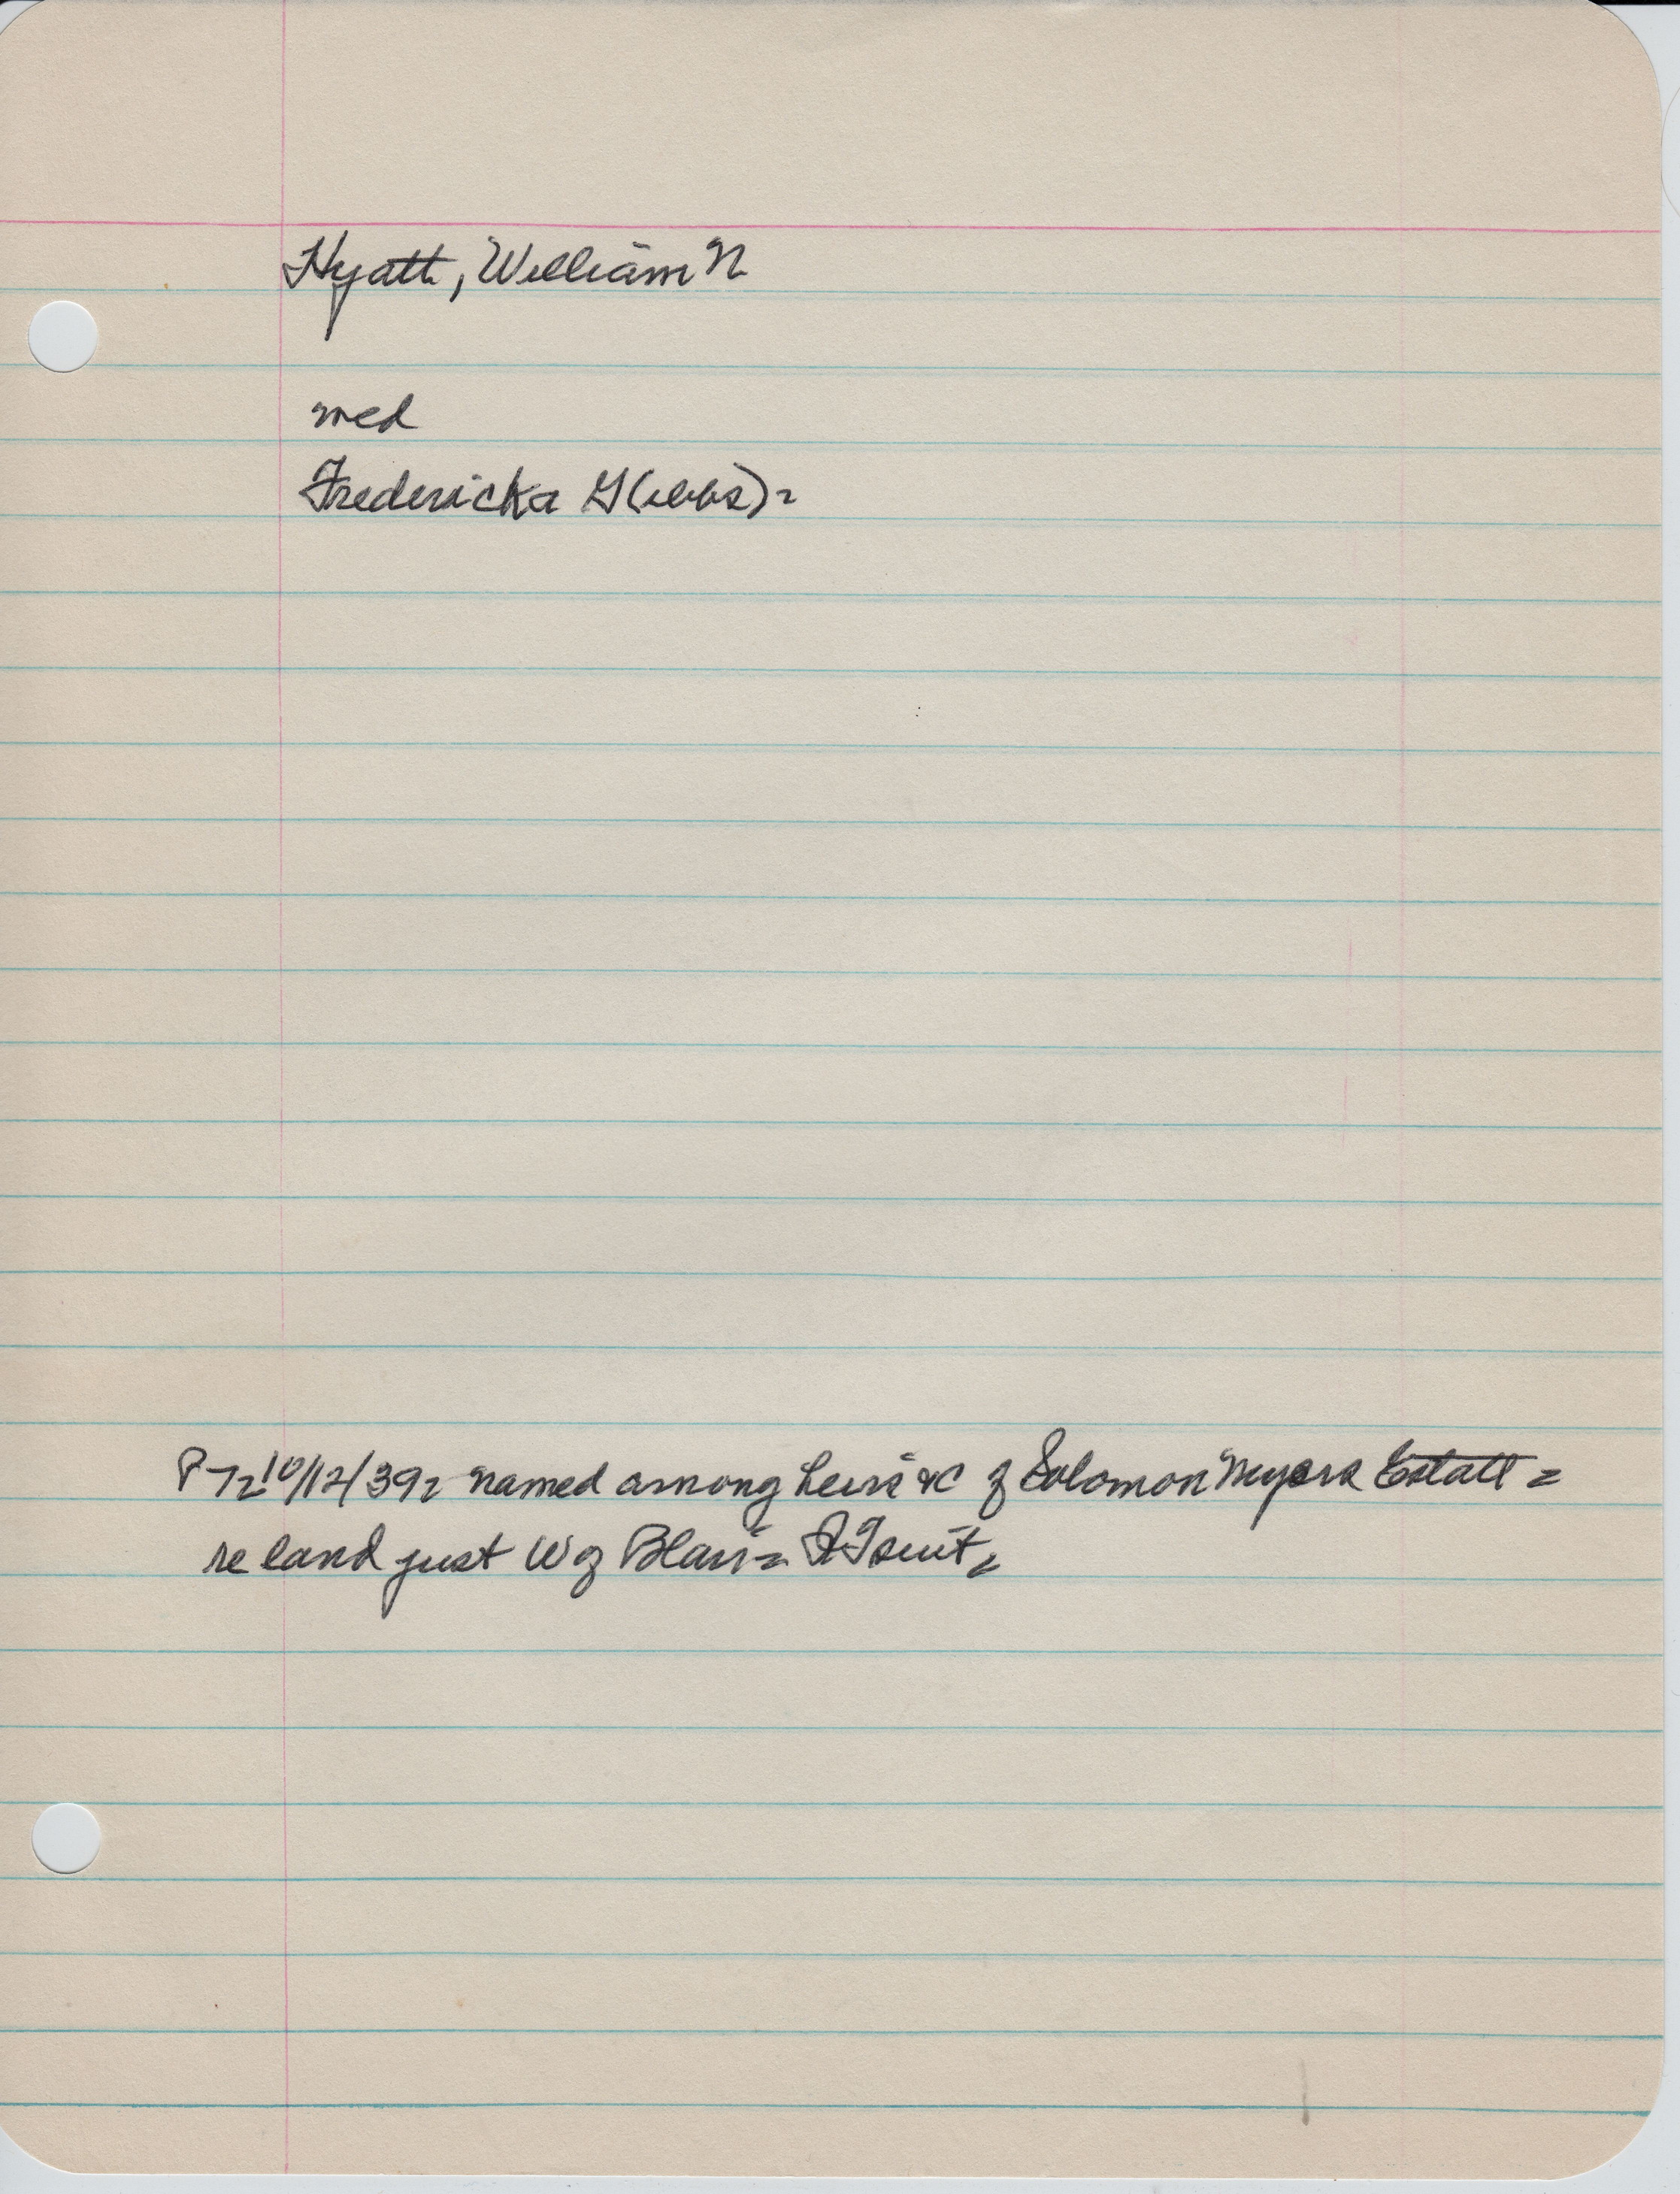 Hyatt, William N
med
Fredericka G(ibbs)=
P7= 10/12/39= named among heirs &c of Solomon Myers Estate =
re land just W of Blair= QT suit=